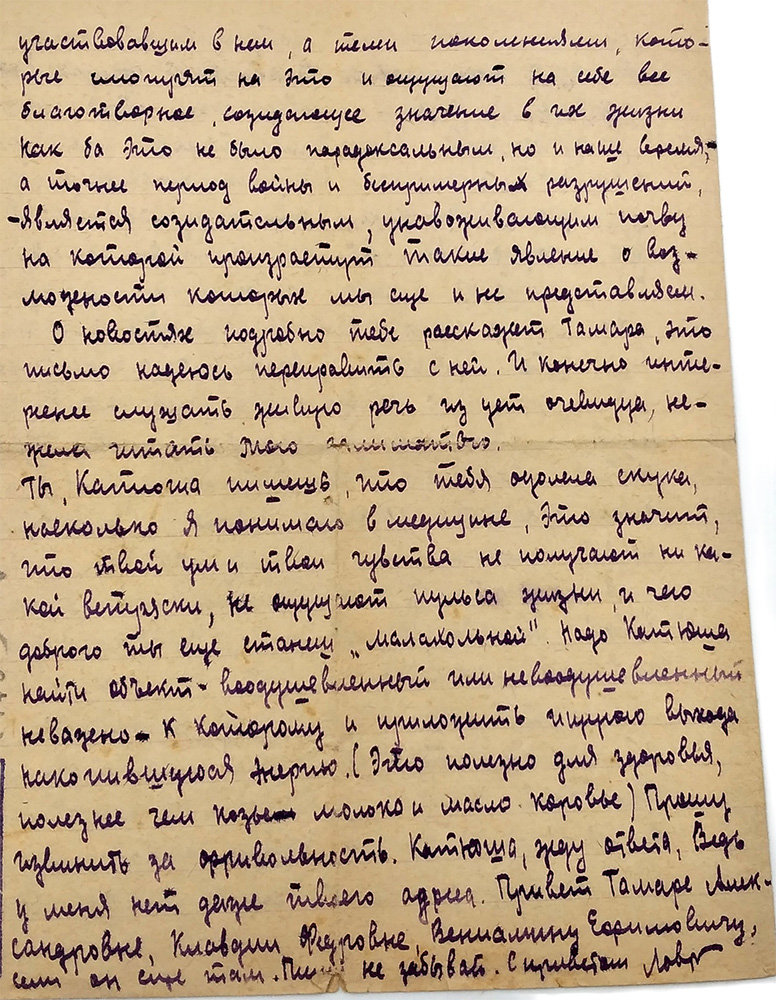 участвовавшим в нем, а теми поколениями, кото-
рые смотрят на это и ощущают на себе все
благотворное, созидающее значение в их жизни
Как ба это не было парадоксальным, но и наше время,-
а точнее период войны и беспримерных разрушений,
-является созидательным, унавоживающим почву
на которой произрастут такие явление о воз-
можности которых мы еще и не представляем.
О новостях подробно тебе расскажет Тамара, это
письмо надеюсь переправить с ней. И конечно инте-
ренее слушать живую речь из уст очевидца, не-
жели читать мою
Ты, Катюша пишешь, что тебя одолела скука,
насколько я понимаю в медицине, это значит,
что твой ум и твои чувства не получают ни ка-
кой встряски, не ощущают пульса жизни, и чего
доброго ты еще станеш „малахольной". Надо Катюша
найти объект - воодушевленный или невоодушевленный
неважно - к которому и приложить ищущую выхода
накопившуюся энергию. (Это полезно для здоровья,
полезнее чем козье молоко и масло коровье) Прошу
извинить за фривольность. Катюша, жду ответа, Ведь
у меня нет даже твоего адреса. Привет Тамаре Алек-
сандровне, Клавдии Федоровне, Вениамину Ефимовичу,
если он еще там. Пиши не забывай. С приветом